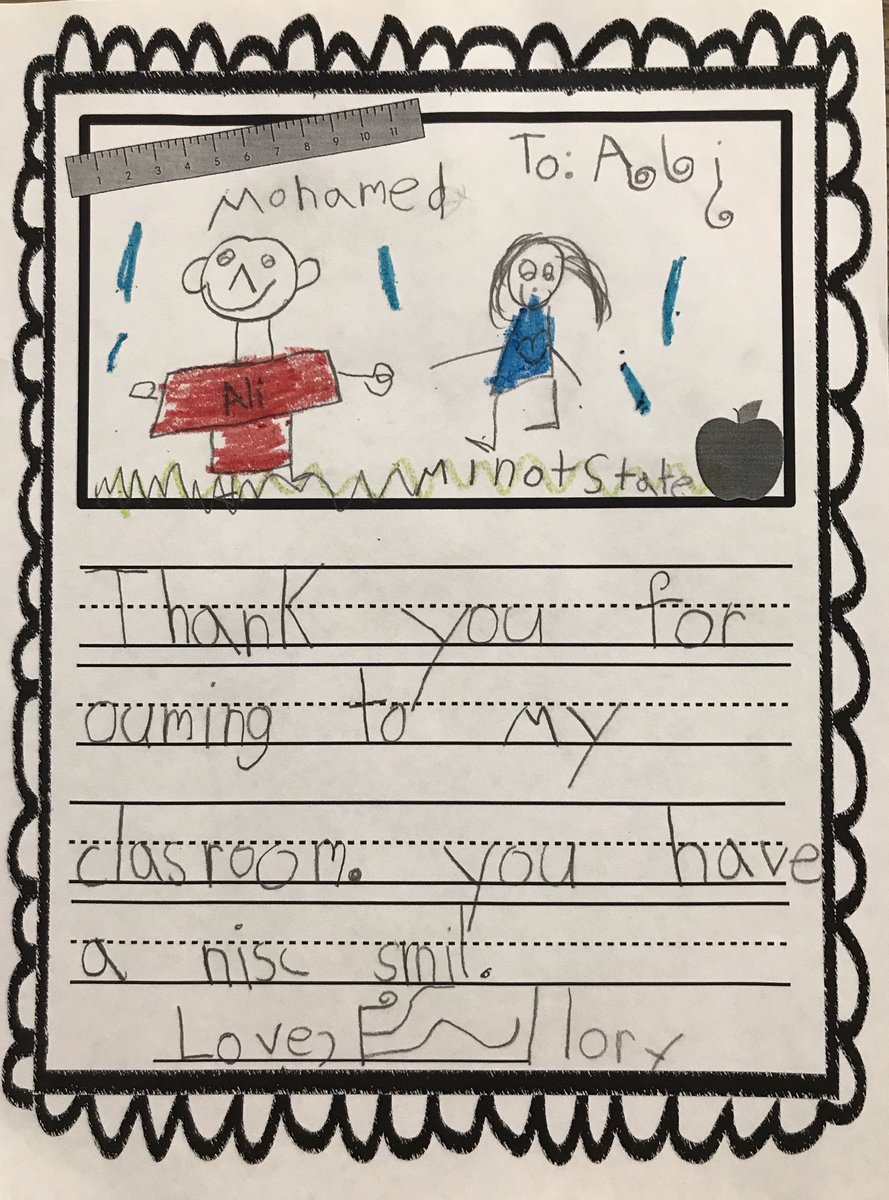 1 2 3 4 5 6 7 8 9 10 11
To:
Mohamed
Ali
Minot State
Thank you for
ouming to my
clasroom. you have
a nisc smil.
Love,